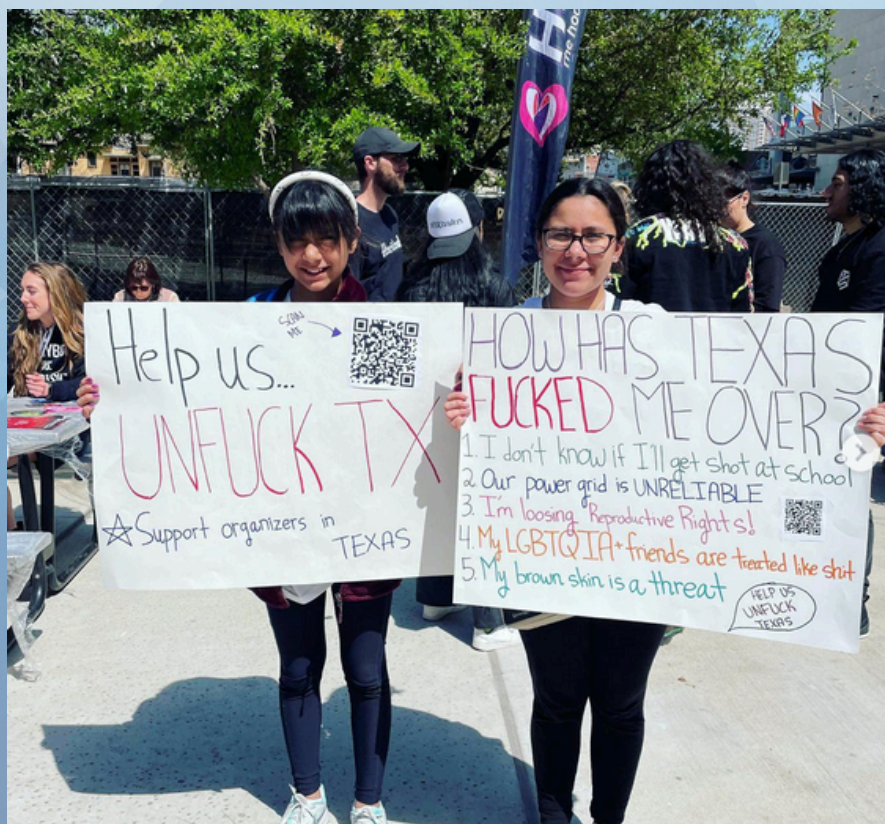 Help us...
SCAN
ME
UNFUCK TX
Support organizers in
TEXAS
HOW HAS TEXAS
FUCKED ME OVER?
1. I don't know if I'll get shot at school
2. Our power grid is UNRELIABLE
3. I'm loosing Reproductive Rights!
4. My LGBTQIA+ friends are treated like shit
5. My brown skin is a threat
HELP US
UNFUCK
TEXAS